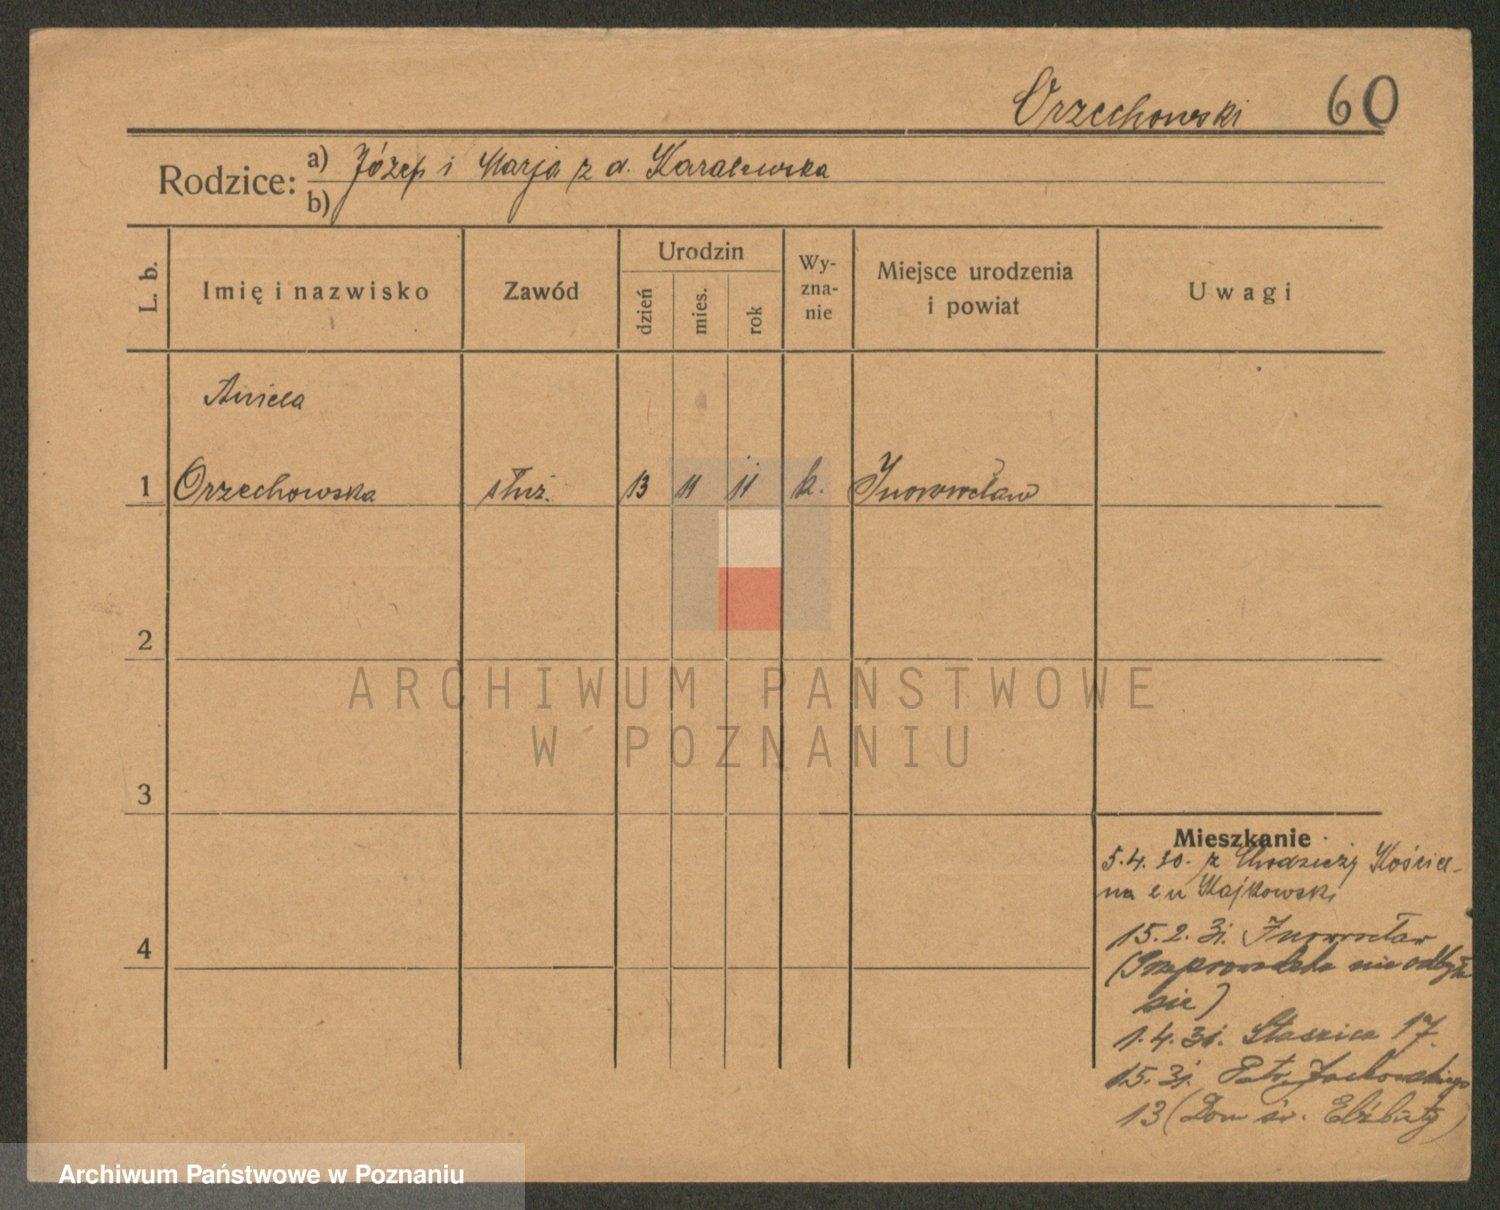 Orzechowski 60
Rodzice: a) Józef i Marja z d. Karalewska
b)
L. b. Imię i nazwisko Zawód Urodzin dzień mies. rok Wy-zna-nie Miejsce urodzenia i powiat Uwagi
Aniela
1 Orzechowska służ. 13 11 11 k. Inowrocław
2
ARCHIWUM PAŃSTWOWE
W POZNANIU
3
Mieszkanie
5.4.30. z Chodzieży Kościel-
na u Majkowski
4
15.2.31. Inowrocław
(Przeprowadzka nie odbyła
sie)
1.4.31. Staszica 17.
15. 31. Patr. Jackowskiego
13 (Dom św. Elżbiety)
Archiwum Państwowe w Poznaniu